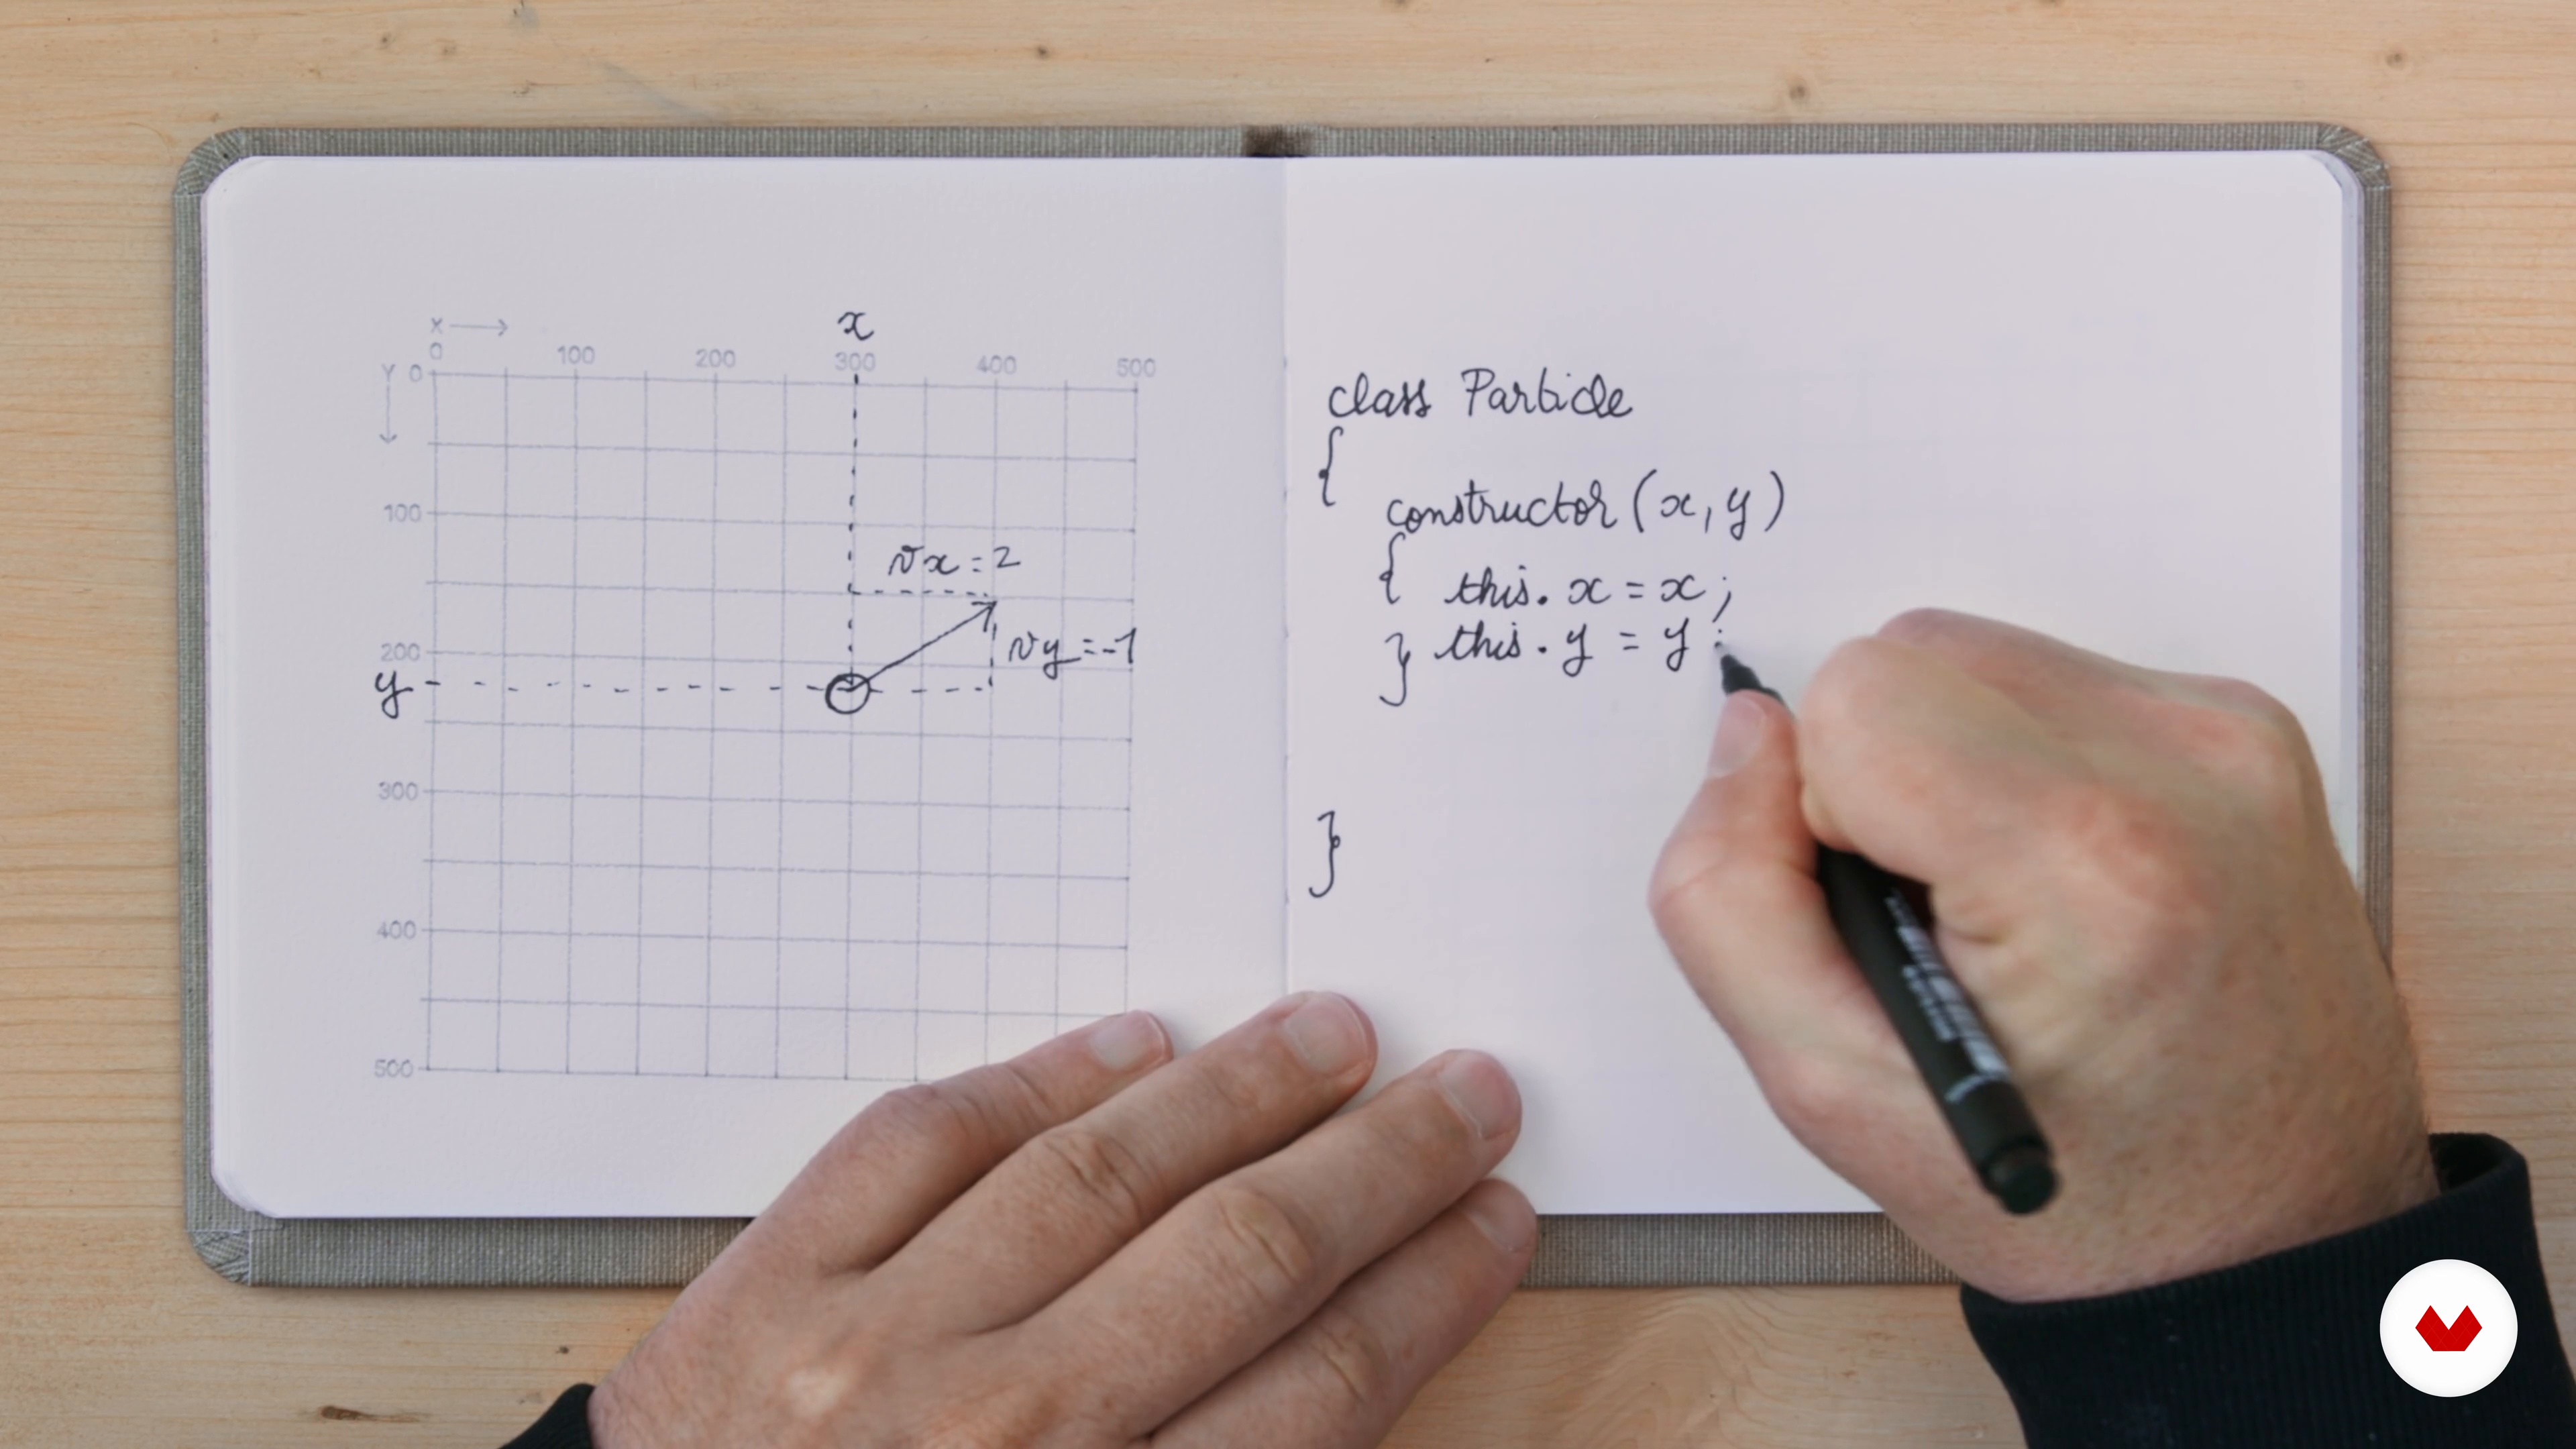 x
X
0 100 200 300 400 500
Y 0
100
vx = 2
200
vy = -1
y
300
400
500
class Particle
{
constructor (x, y)
{ this. x = x ;
} this. y = y ;
}